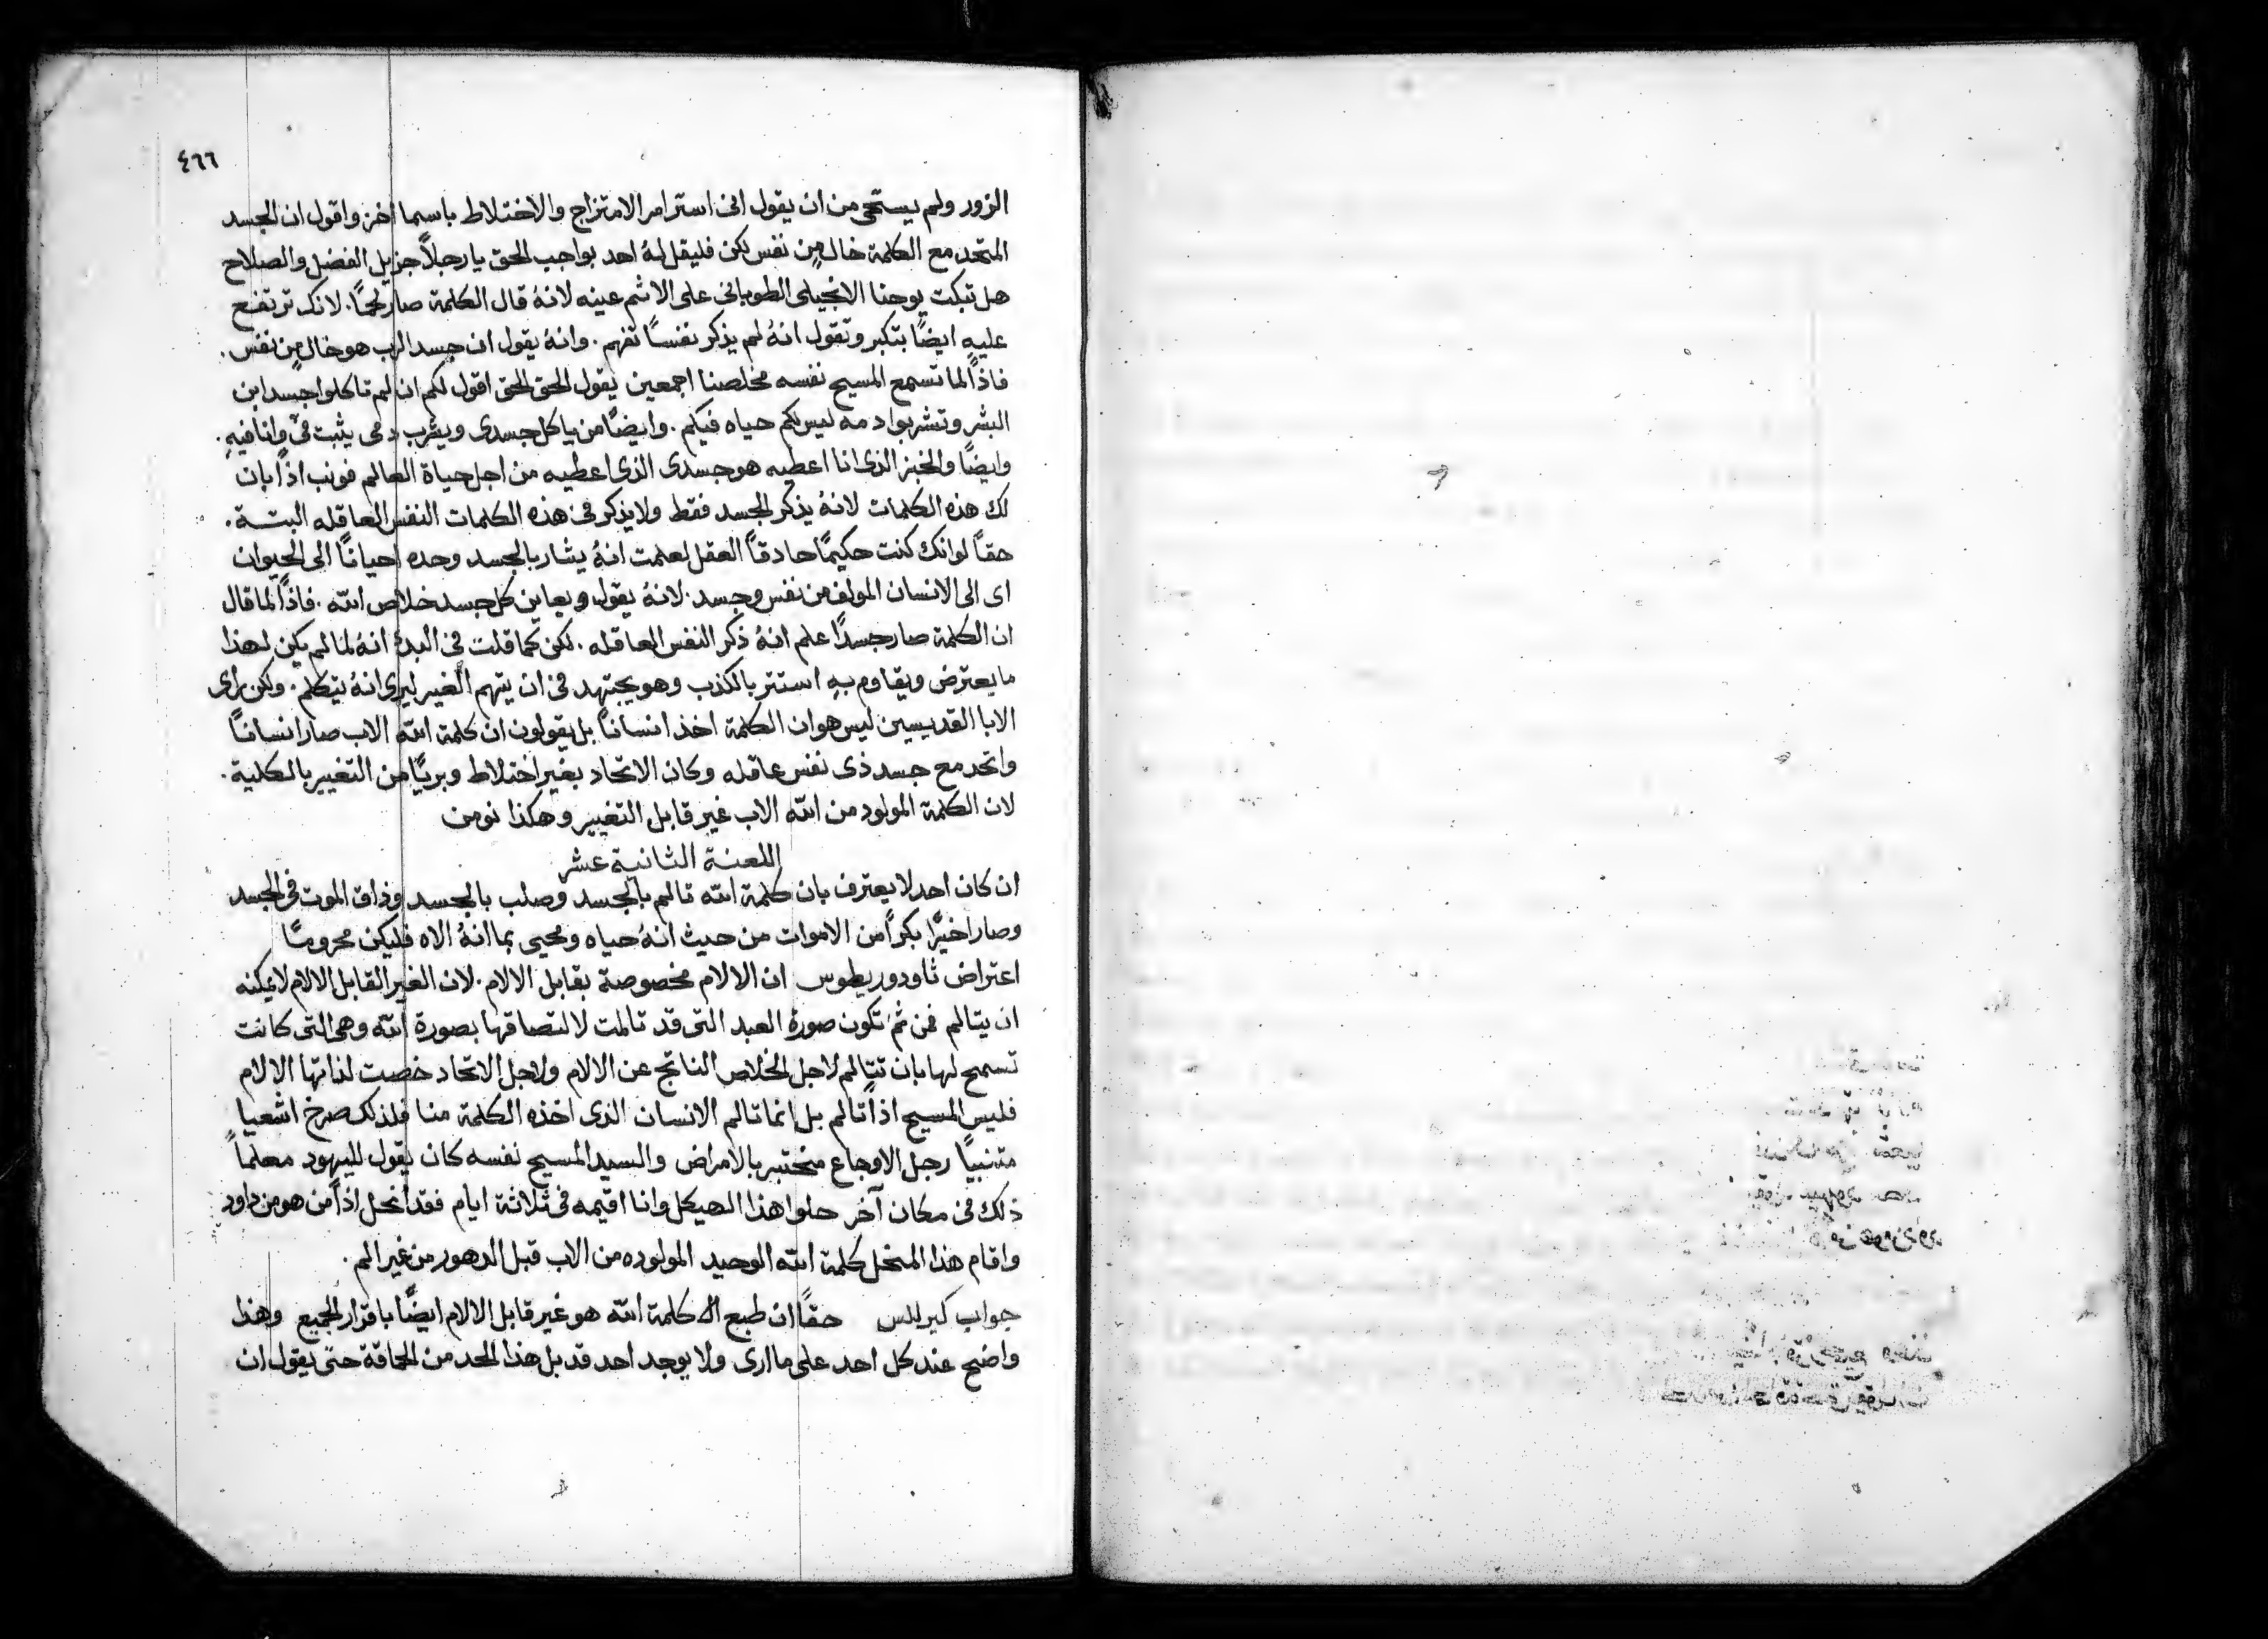 ٤٦٦
الزور ولم يستحى من ان يقول انى استر امر الامتزاج والاختلاط باسما اخر واقول ان الجسد
المتحد مع الكلمة خالٍ مِن نفس لكن فليقل لهُ احد بواجب الحق يا رجلاً جزيل الفضل والصلاح
هل تبكت يوحنا الانجيلى الطوبانى على الاثم عينه لانهُ قال الكلمة صار لحمًا. لانك ترتفع
عليهِ ايضًا بتكبر وتقول انهُ لم يذكر نفسًا تفهم. وانهُ يقول ان جسد الرب هو خالٍ مِن نفس.
فاذًا لما تسمع المسيح نفسه مخلصنا اجمعين يقول الحق الحق اقول لكم ان لم تاكلوا جسد ابن
البشر وتشربوا دمه ليس لكم حياه فيكم. وايضًا من ياكل جسدى ويشرب دمى يثبت فىّ وانا فيهِ.
وايضًا والخبز الذى انا اعطيه هو جسدى الذى اعطيه من اجل حياة العالم فونب اذًا بان
لك هذه الكلمات لانهُ يذكر الجسد فقط ولا يذكر فى هذه الكلمات النفس العاقله البتــة.
حقاً لو انك كنت حكيمًا حادقاً العقل لعلمت انهُ يشار بالجسد وحده احيانًا الى الحيوان
اى الى الانسان المولف من نفس وجسد. لانهُ يقول ويعاين كل جسد خلاص الله. فاذًا لما قال
ان الكلمة صار جسدًا علم انهُ ذكر النفس العاقله. لكن كما قلت فى البدئ انهُ لما لم يكن لهذا
ما يعترض ويقاوم بهِ استتر بالكذب وهو يجتهد فى ان يتهم الغير ليرى انهُ يتكلم. ولكن راى
الابا القديسين ليس هو ان الكلمة اخذ انسانًا بل يقولون ان كلمة الله الاب صار انسانًا
واتحد مع جسد ذى نفس عاقله وكان الاتحاد بغير اختلاط وبريًا من التغيير بالكلية.
لان الكلمة المولود من الله الاب غير قابل التغيير وهكذا نومن
اللعنة الثانية عشر
ان كان احد لا يعترف بان كلمة الله تالم بالجسد وصلب بالجسد وذاق الموت فى الجسد
وصار اخيرًا بكراً من الاموات من حيث انهُ حياه ومحيى بما انهُ الاه فليكن محرومًا
اعتراض ثاودوريطوس ان الالام مخصوصة بقابل الالام. لان الغير القابل الالام لا يمكنه
ان يتالم فمن ثمَ تكون صورة العبد التى قد تالمت لالتصاقها بصورة الله وهى التى كانت
تسمح لها بان تتالم لاجل الخلاص الناتج عن الالام ولاجل الاتحاد خصت لذاتها الالام
فليس المسيح اذًا تالم بل انما تالم الانسان الذى اخذه الكلمة منا فلذلك صرخ اشعيا
متنبيًا رجل الاوجاع مختبر بالامراض والسيد المسيح نفسه كان يقول لليهود معلماً
ذلك فى مكان آخر حلوا هذا الهيكل وانا اقيمه فى ثلاثة ايام فقد انحل اذًا من هو من داود
واقام هذا المنحل كلمة الله الوحيد المولوده من الاب قبل الدهور من غير الم.
جواب كيرللس حقًا ان طبع الـ كلمة الله هو غير قابل الالام ايضًا باقرار الجميع وهذا
واضح عند كل احد على ما ارى ولا يوجد احد قد بل هذا الحد من الحماقة حتى يقول ان